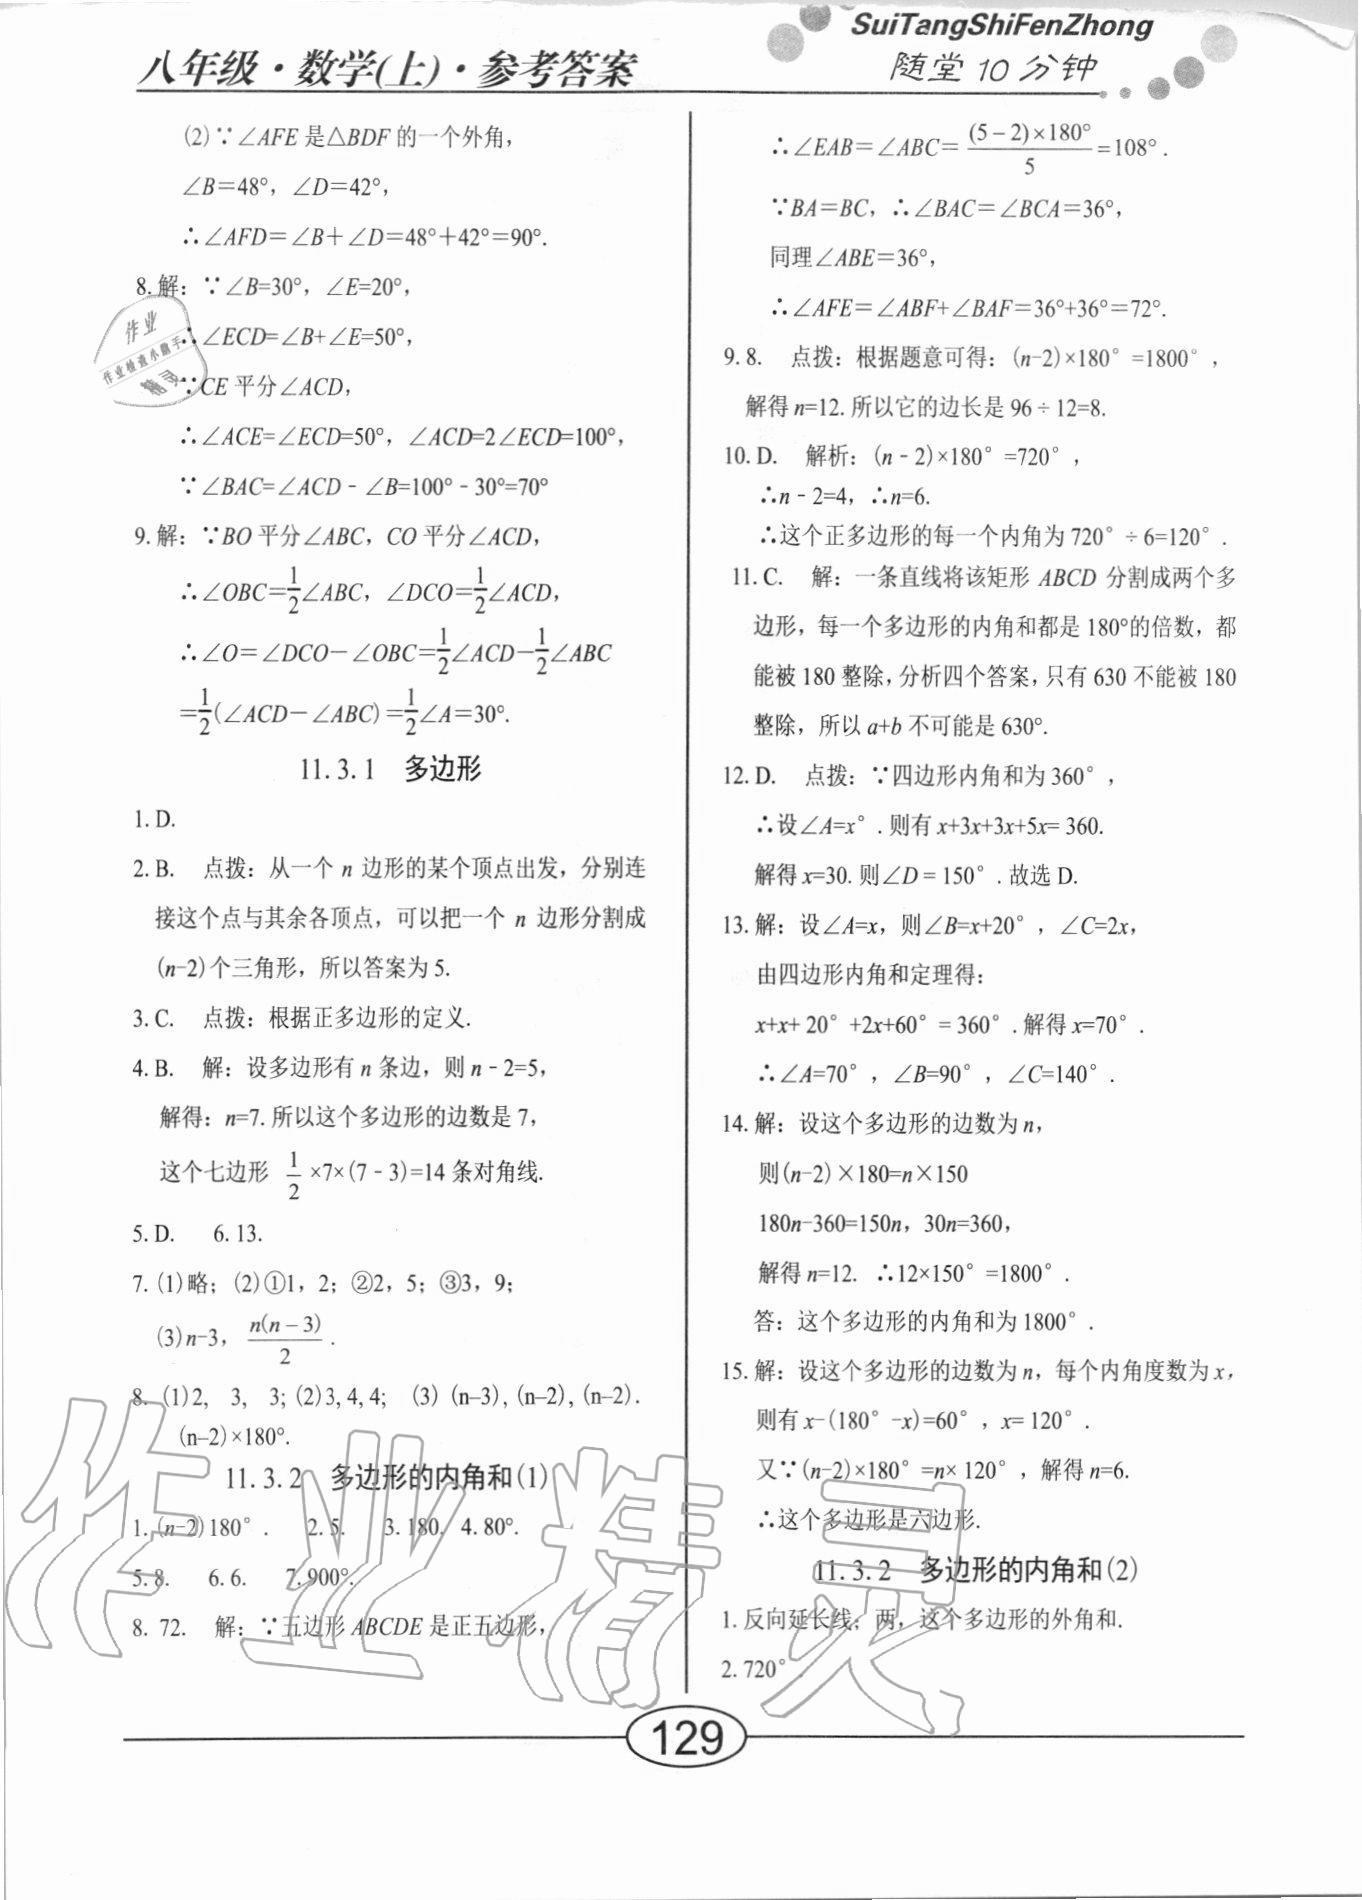 八年级·数学(上)·参考答案
SuiTangShiFenZhong
随堂10分钟
(2)∵∠AFE是△BDF的一个外角，
∠B=48°，∠D=42°，
∴∠AFD=∠B+∠D=48°+42°=90°.
8.解：∵∠B=30°，∠E=20°，
∴∠ECD=∠B+∠E=50°，
∵CE平分∠ACD，
∴∠ACE=∠ECD=50°，∠ACD=2∠ECD=100°，
∵∠BAC=∠ACD-∠B=100°-30°=70°
9.解：∵BO平分∠ABC，CO平分∠ACD，
∴∠OBC=1/2∠ABC，∠DCO=1/2∠ACD，
∴∠O=∠DCO-∠OBC=1/2∠ACD-1/2∠ABC
=1/2(∠ACD-∠ABC)=1/2∠A=30°.
11.3.1 多边形
1.D.
2.B. 点拨：从一个n边形的某个顶点出发，分别连
接这个点与其余各顶点，可以把一个n边形分割成
(n-2)个三角形，所以答案为5.
3.C. 点拨：根据正多边形的定义.
4.B. 解：设多边形有n条边，则n-2=5，
解得：n=7.所以这个多边形的边数是7，
这个七边形 1/2×7×(7-3)=14条对角线.
5.D. 6.13.
7.(1)略；(2)①1，2；②2，5；③3，9；
(3)n-3，n(n-3)/2.
8. (1)2, 3, 3; (2)3,4,4; (3) (n–3), (n–2), (n–2).
(n–2)×180°.
11.3.2 多边形的内角和(1)
1.(n-2)180°. 2.5. 3.180. 4.80°.
5.8. 6.6. 7.900°.
8. 72. 解：∵五边形ABCDE是正五边形，
∴∠EAB=∠ABC=(5-2)×180°/5=108°.
∵BA=BC，∴∠BAC=∠BCA=36°，
同理∠ABE=36°，
∴∠AFE=∠ABF+∠BAF=36°+36°=72°.
9.8. 点拨：根据题意可得：(n-2)×180°=1800°，
解得n=12.所以它的边长是96÷12=8.
10.D. 解析：(n-2)×180°=720°，
∴n-2=4，∴n=6.
∴这个正多边形的每一个内角为720°÷6=120°.
11.C. 解：一条直线将该矩形ABCD分割成两个多
边形，每一个多边形的内角和都是180°的倍数，都
能被180整除，分析四个答案，只有630不能被180
整除，所以a+b不可能是630°.
12.D. 点拨：∵四边形内角和为360°，
∴设∠A=x°.则有x+3x+3x+5x=360.
解得x=30.则∠D=150°.故选D.
13.解：设∠A=x，则∠B=x+20°，∠C=2x，
由四边形内角和定理得：
x+x+20°+2x+60°=360°.解得x=70°.
∴∠A=70°，∠B=90°，∠C=140°.
14.解：设这个多边形的边数为n，
则(n-2)×180=n×150
180n-360=150n，30n=360，
解得n=12. ∴12×150°=1800°.
答：这个多边形的内角和为1800°.
15.解：设这个多边形的边数为n，每个内角度数为x，
则有x-(180°-x)=60°，x=120°.
又∵(n-2)×180°=n×120°，解得n=6.
∴这个多边形是六边形.
11.3.2 多边形的内角和(2)
1.反向延长线；两，这个多边形的外角和.
2.720°.
129
作业
作业检查小助手
精灵
作业精灵